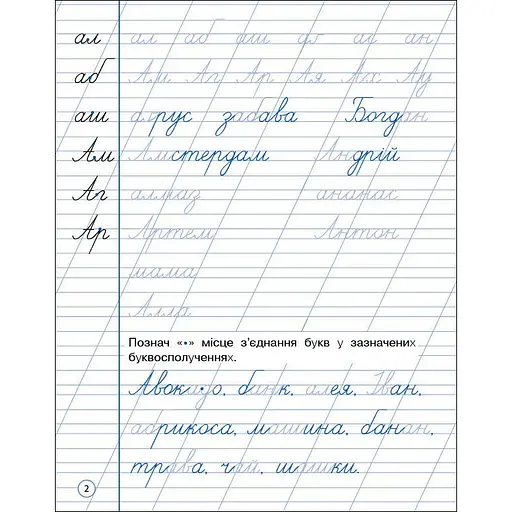 ал ал аб аш аг ас ан
аб Ам Аг Ар Ая Ах Ау
аш аркус забава Богдан
Ам Амстердам Андрій
Аг алмаз ананас
Ар Артем Антон
мама
Алла
Познач «•» місце з'єднання букв у зазначених
буквосполученнях.
Авокадо, банк, алея, Іван,
абрикоса, машина, банан,
трава, чай, шашки.
2